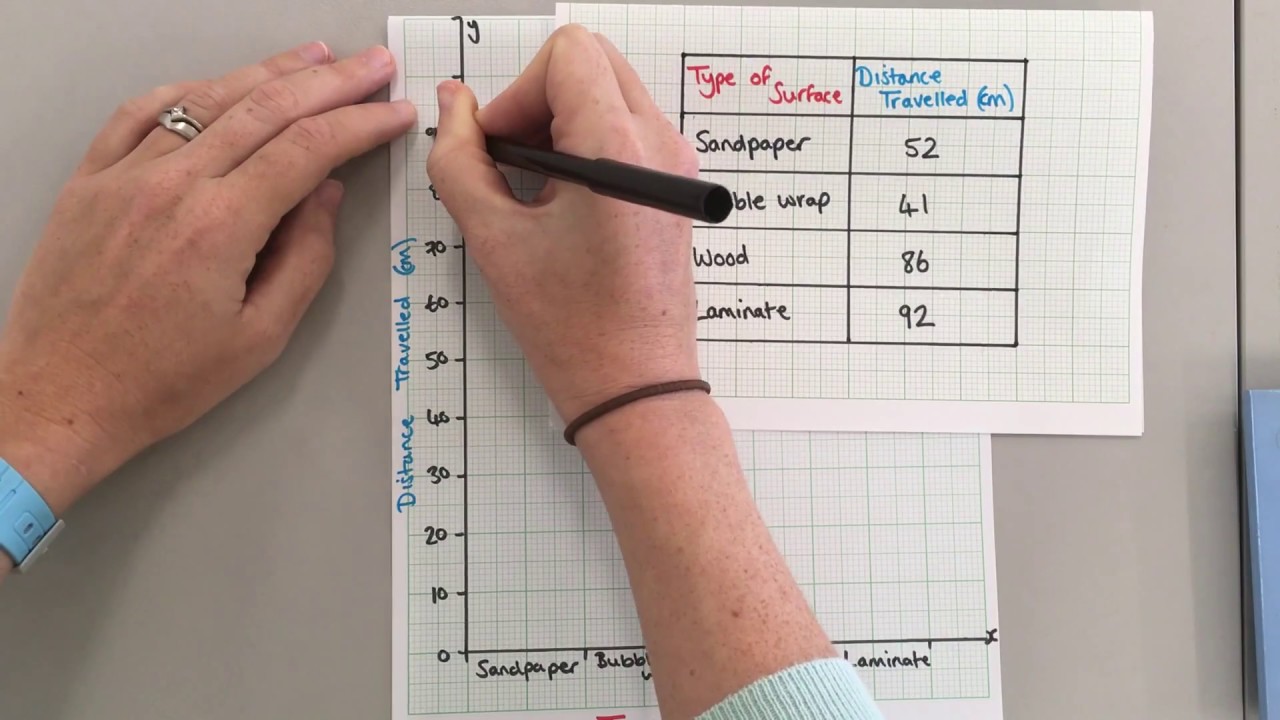 y
Type of Surface
Distance Travelled (cm)
Sandpaper 52
ble wrap 41
Wood 86
Laminate 92
70
60
50
40
30
20
10
0
Distance Travelled (cm)
x
Sandpaper
Bubbl
Laminate